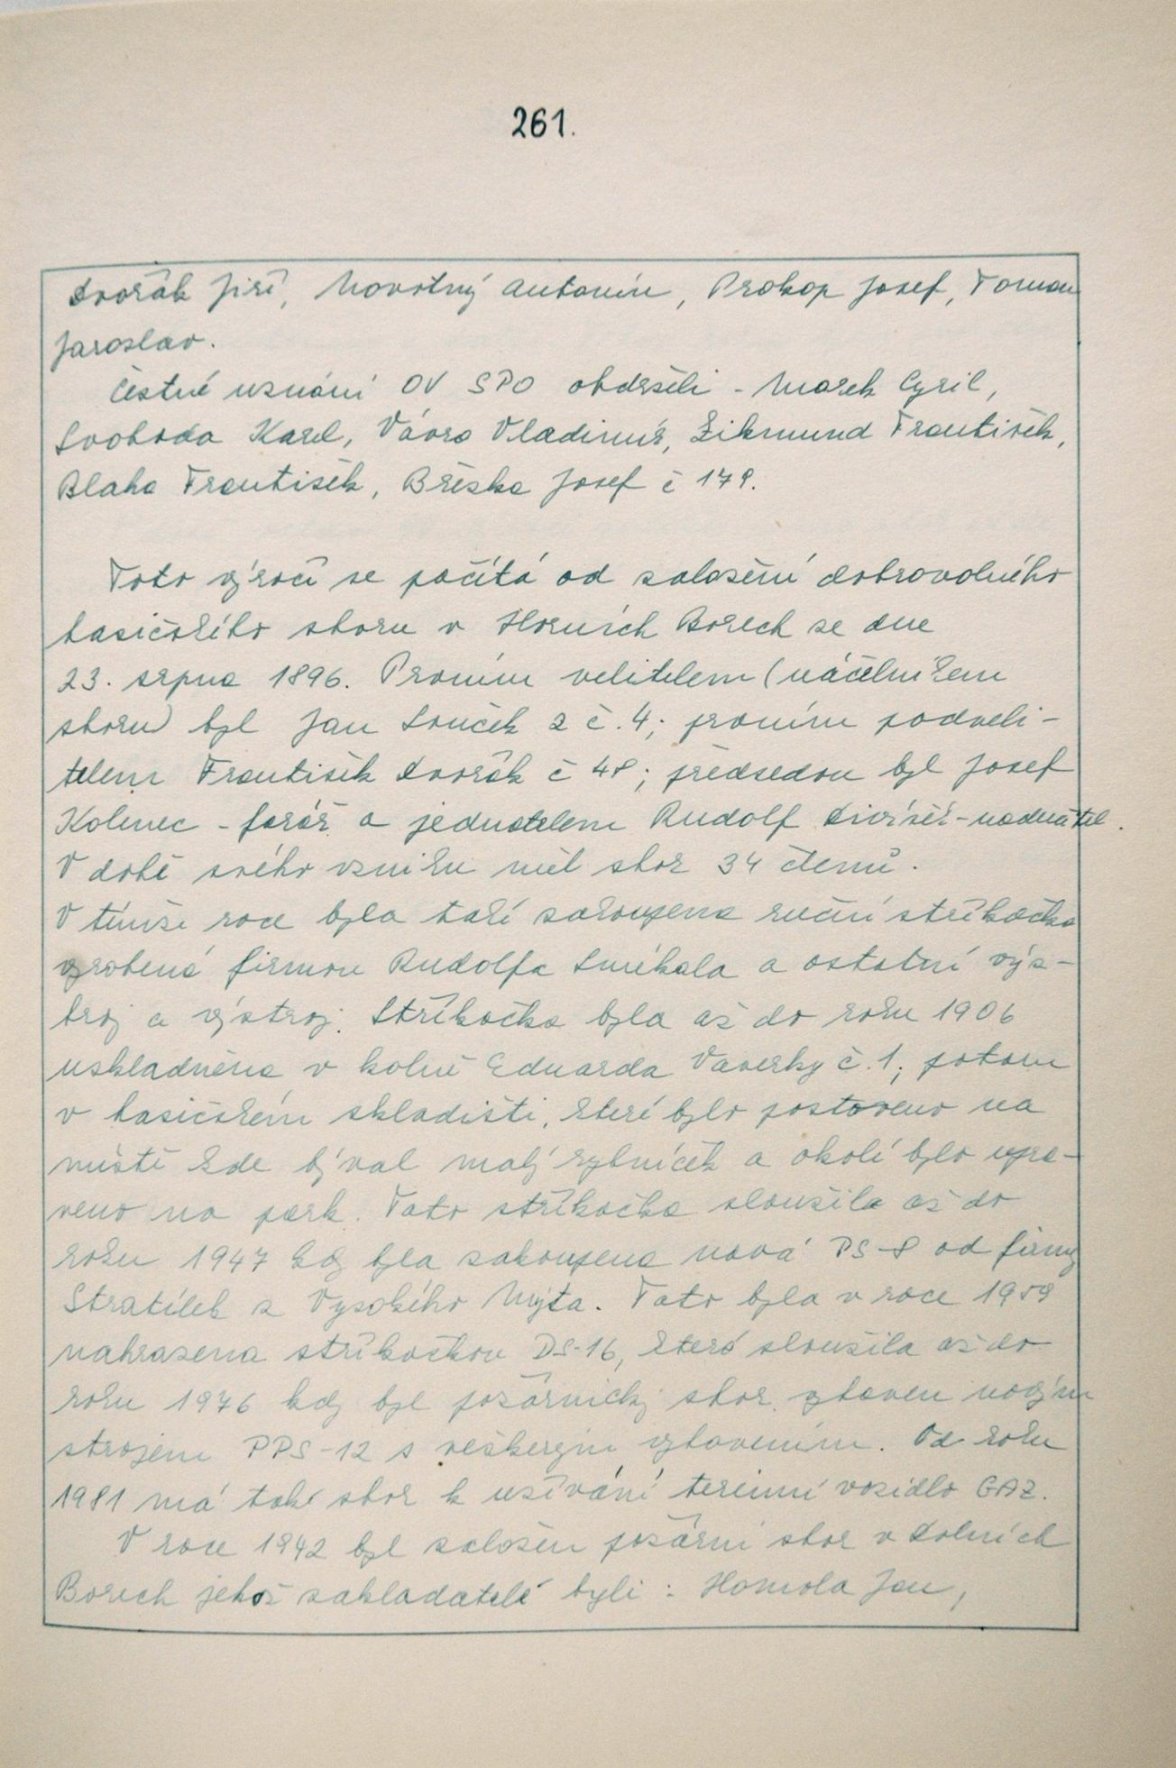 261.
Dvořák Jiří, Novotný Antonín, Prokop Josef, Toman
Jaroslav.
Čestné uznání OV SPO obdrželi - Marek Cyril,
Svoboda Karel, Vávra Vladimír, Zikmund František,
Blaha František, Břeska Josef č 179.
Toto výročí se počítá od založení dobrovolného
hasičského sboru v Horních Borech se dne
23. srpna 1896. Prvním velitelem (náčelníkem
sboru) byl Jan Souček z č. 4; prvním podveli-
telem František Dvořák č 48; předsedou byl Josef
Kolenec - farář a jednatelem Rudolf Diviš - nadučitel.
V době svého vzniku měl sbor 34 členů.
V témže roce byla také zakoupena ruční stříkačka
vyrobená firmou Rudolfa Smékala a ostatní výz-
broj a výstroj. Stříkačka byla až do roku 1906
uskladněna v kolně Eduarda Vaverky č. 1; potom
v hasičském skladišti, které bylo postaveno na
místě kde býval malý rybníček a okolí bylo upra-
veno na park. Tato stříkačka sloužila až do
roku 1947 kdy byla zakoupena nová PS-8 od firmy
Stratílek z Vysokého Mýta. Tato byla v roce 1959
nahrazena stříkačkou DS-16, která sloužila až do
roku 1976 kdy byl požárnický sbor vybaven novým
strojem PPS-12 s veškerým vybavením. Od roku
1981 má také sbor k užívání terénní vozidlo GAZ.
V roce 1942 byl založen požární sbor v Dolních
Borech jehož zakladatelé byli: Homola Jan,